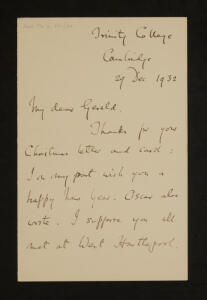 Trinity College
Cambridge
29 Dec 1932
My dear Gerald,
Thanks for your
Christmas letter and card:
I on my part wish you a
happy New Year. Oscar also
wrote. I suppose you all
met at West Hartlepool.